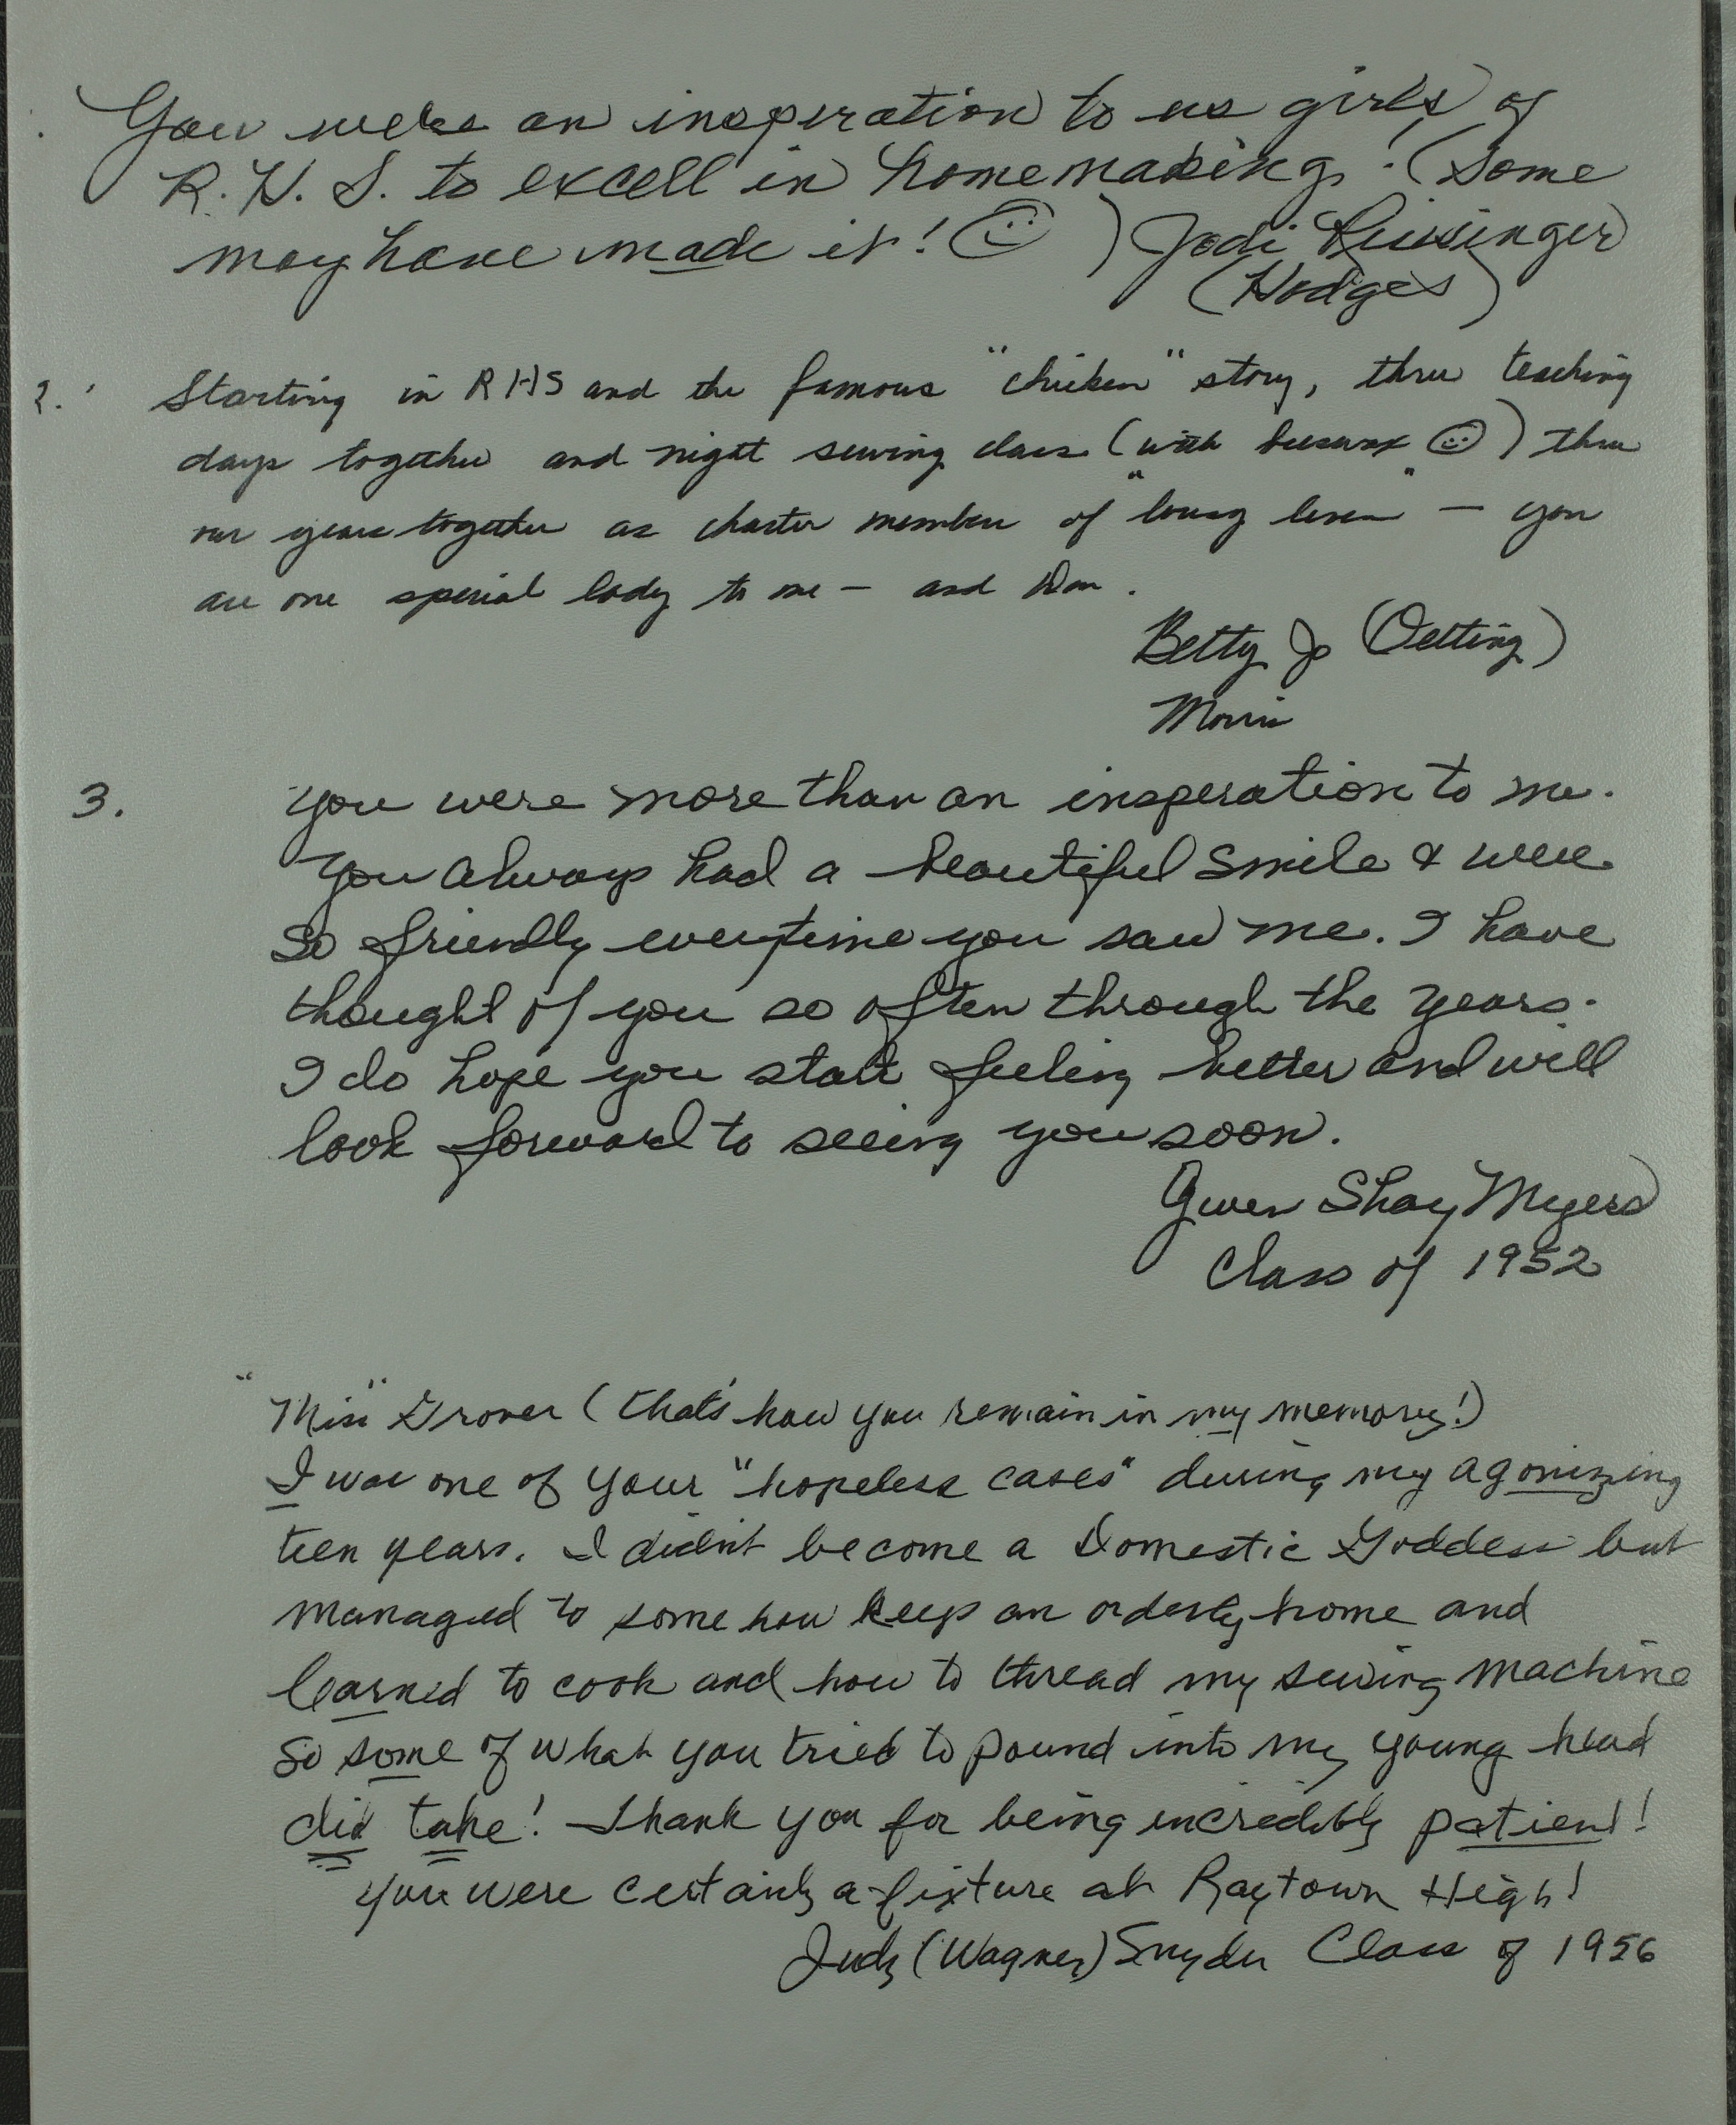 You were an insperation to us girls of
R.H.S. to excell in homemaking! (Some
may have made it! ) Jodi
(Hodges)
2. Starting in RHS and the famous "chicken" story, thru teaching
days together and night sewing class (with beeswax ) thru
our years together as charter member of "   " — you
are one special lady to me — and Don.
Betty Jo (Oetting)
Morris
3. You were more than an insperation to me.
You always had a beautiful smile & were
so friendly everytime you saw me. I have
thought of you so often through the years.
I do hope you start feeling better and will
look forward to seeing you soon.
Gwen Shay Myers
Class of 1952
"Miss" Grover (that's how you remain in my memory!)
I was one of your "hopeless cases" during my agonizing
teen years. I didn't become a Domestic Goddess but
managed to some how keep an orderly home and
learned to cook and how to thread my sewing machine
so some of what you tried to pound into my young head
did take! Thank you for being incredibly patient!
You were certainly a fixture at Raytown High!
Judy (Wagner) Snyder Class of 1956